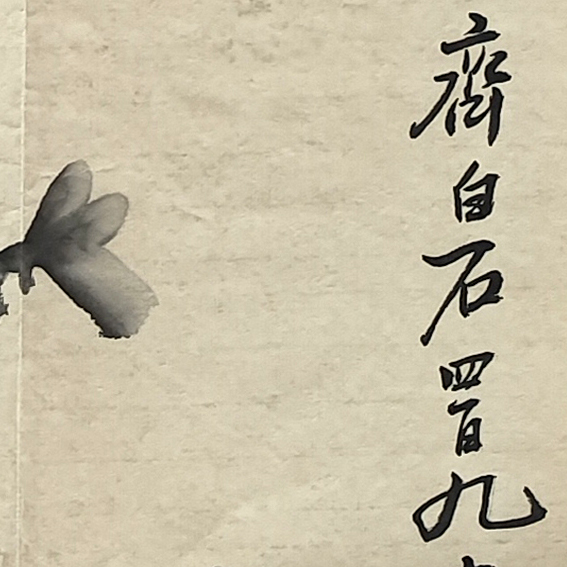 齊白石四百九